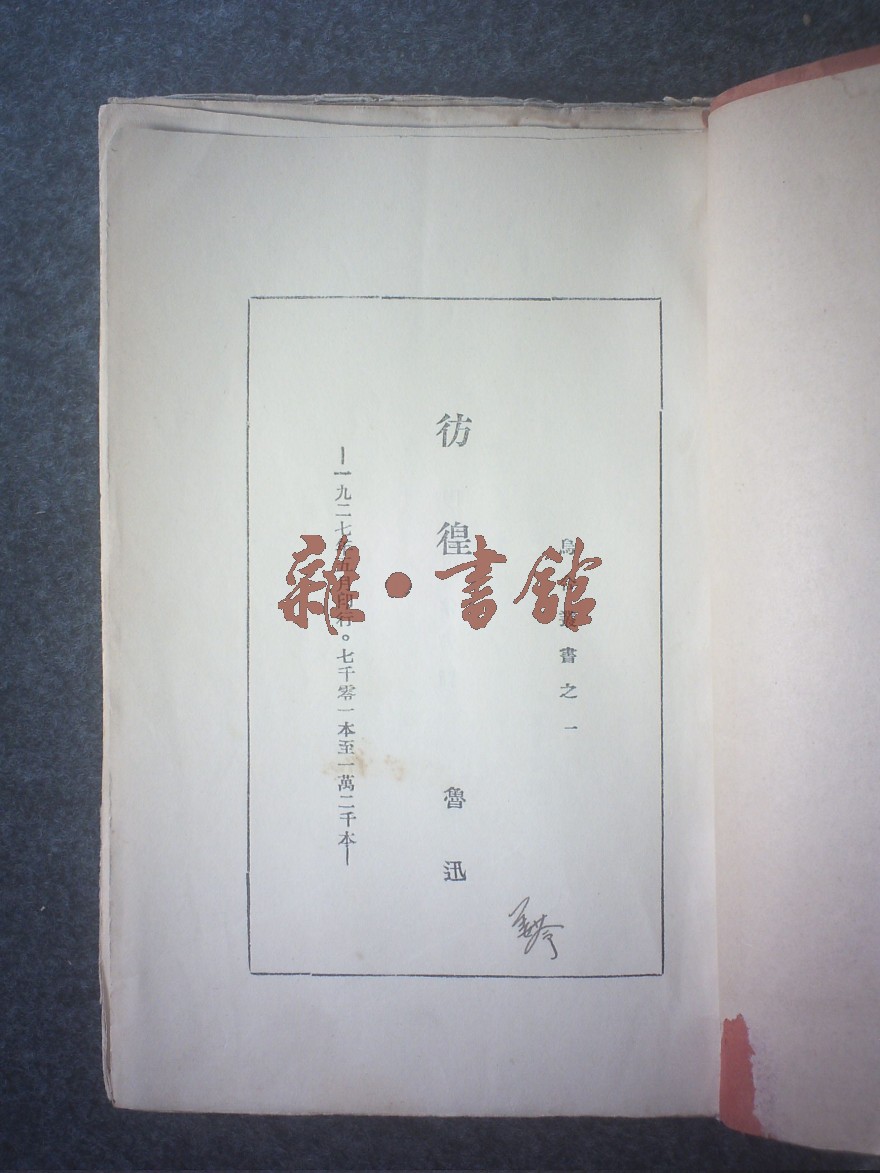 烏合叢書之一
彷徨
魯迅
—一九二七年五月印行。七千零一本至一萬二千本—
雜·書館